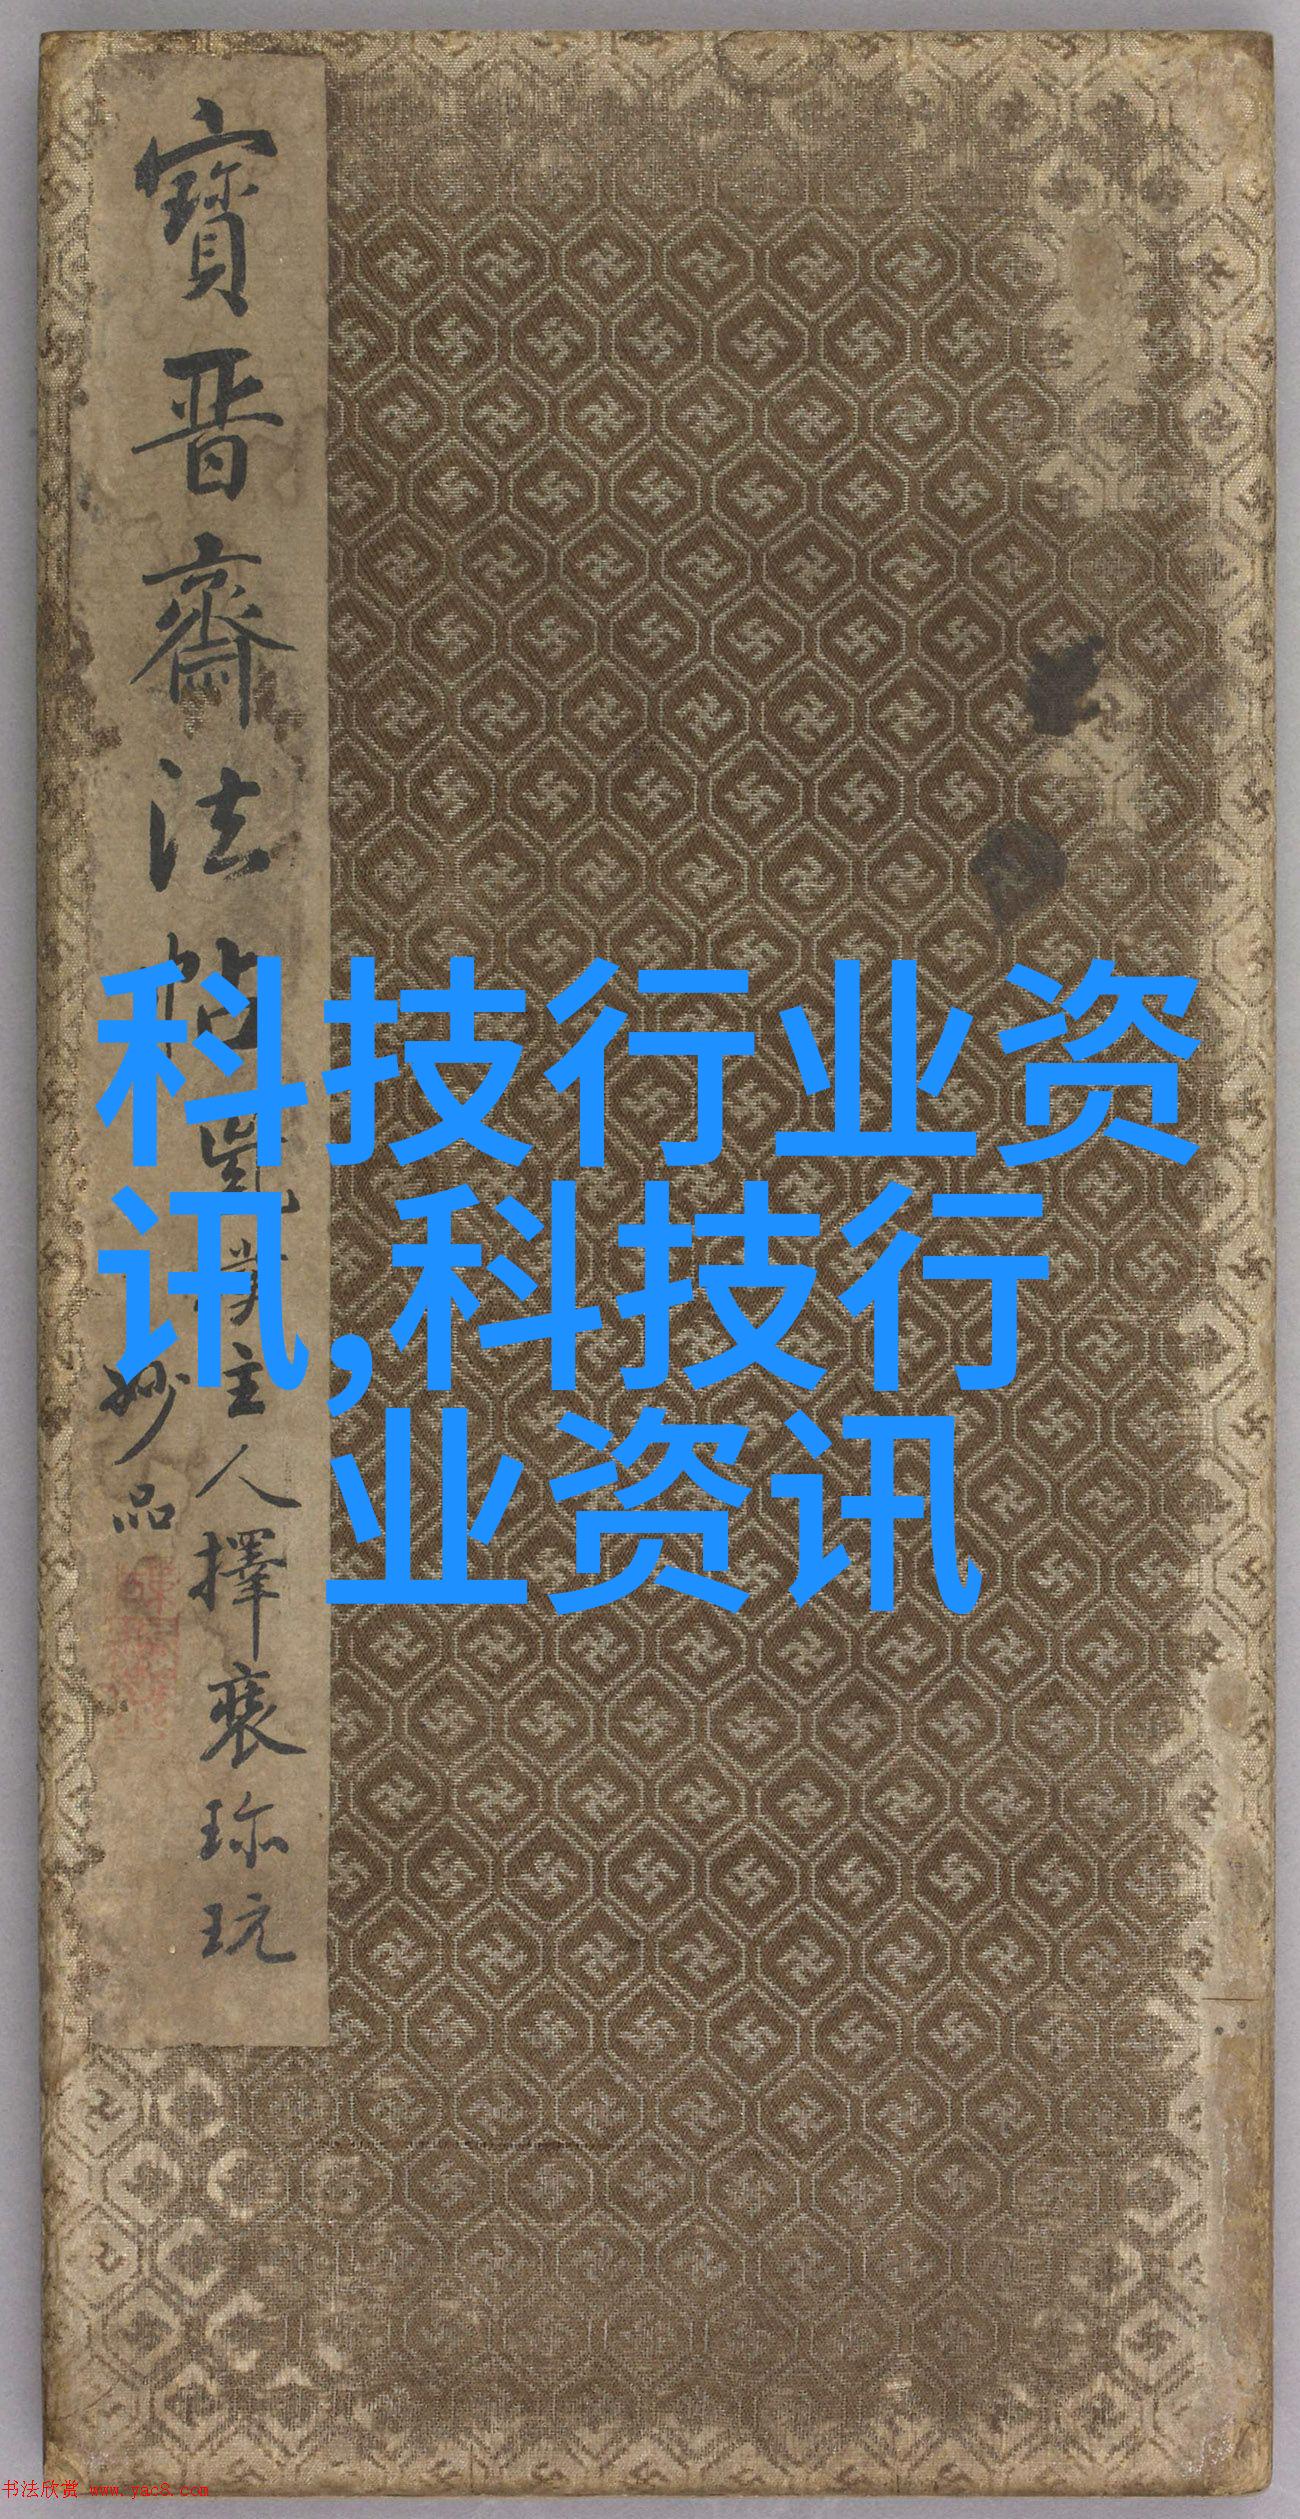 寶晉齋法帖
主人擇裘珎玩
妙品
科技行业资
讯,科技行
业资讯
书法欣赏 www.yac8.com